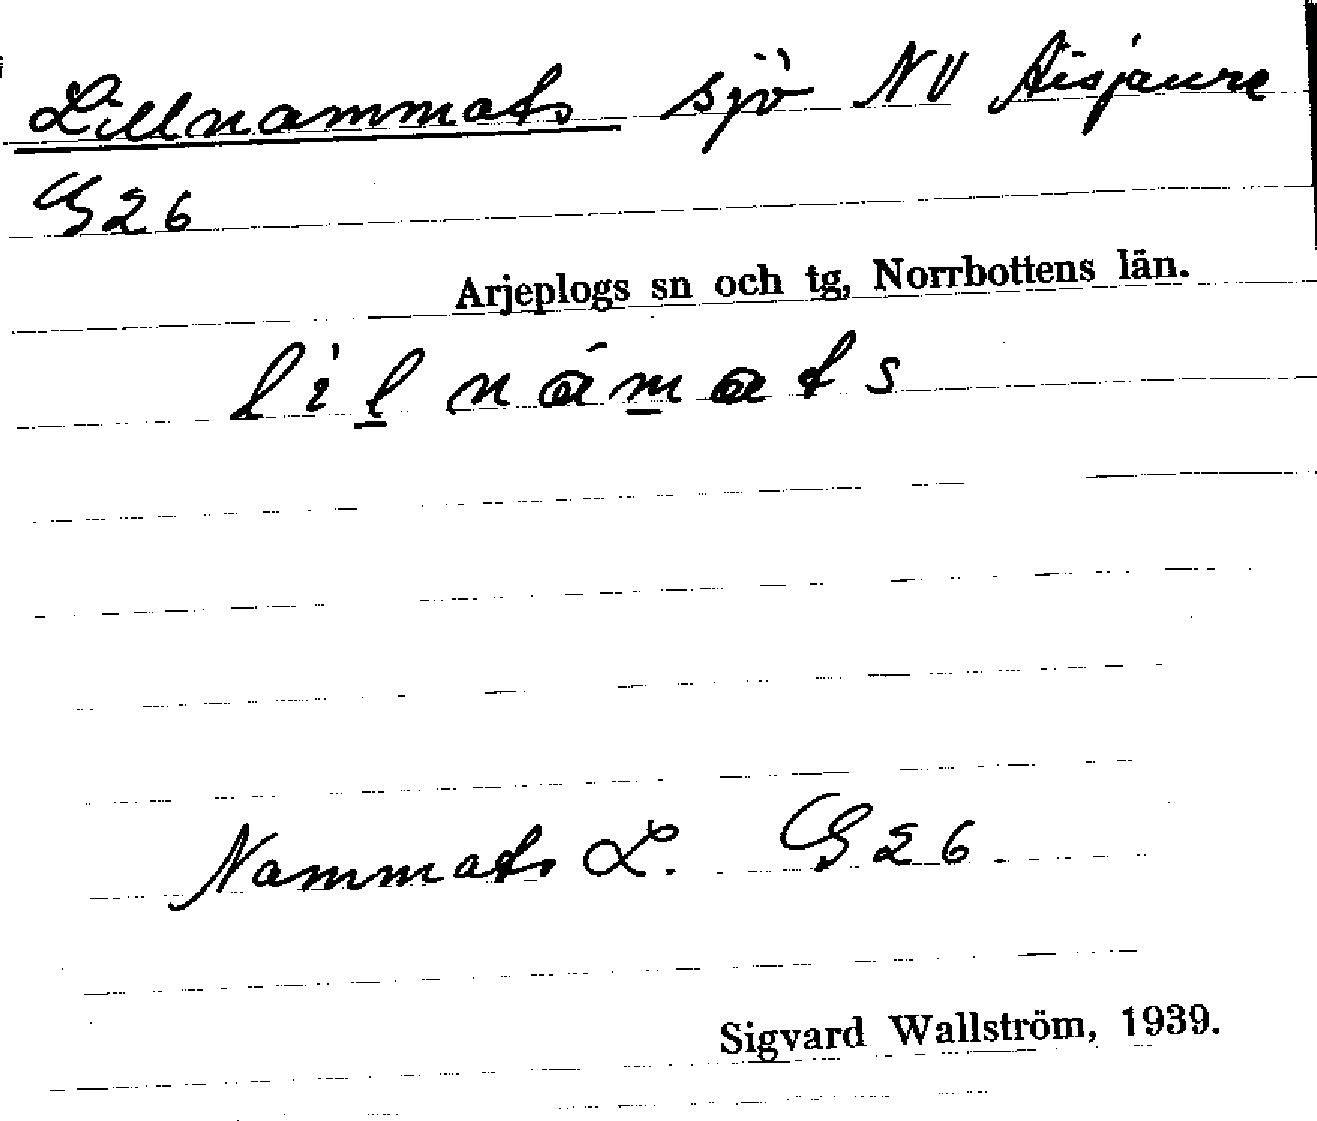 Lillnammats sjö NV Aisjaure
G26
Arjeplogs sn och tg, Norrbottens län.
lilnámats
Nammats L. G26
Sigvard Wallström, 1939.